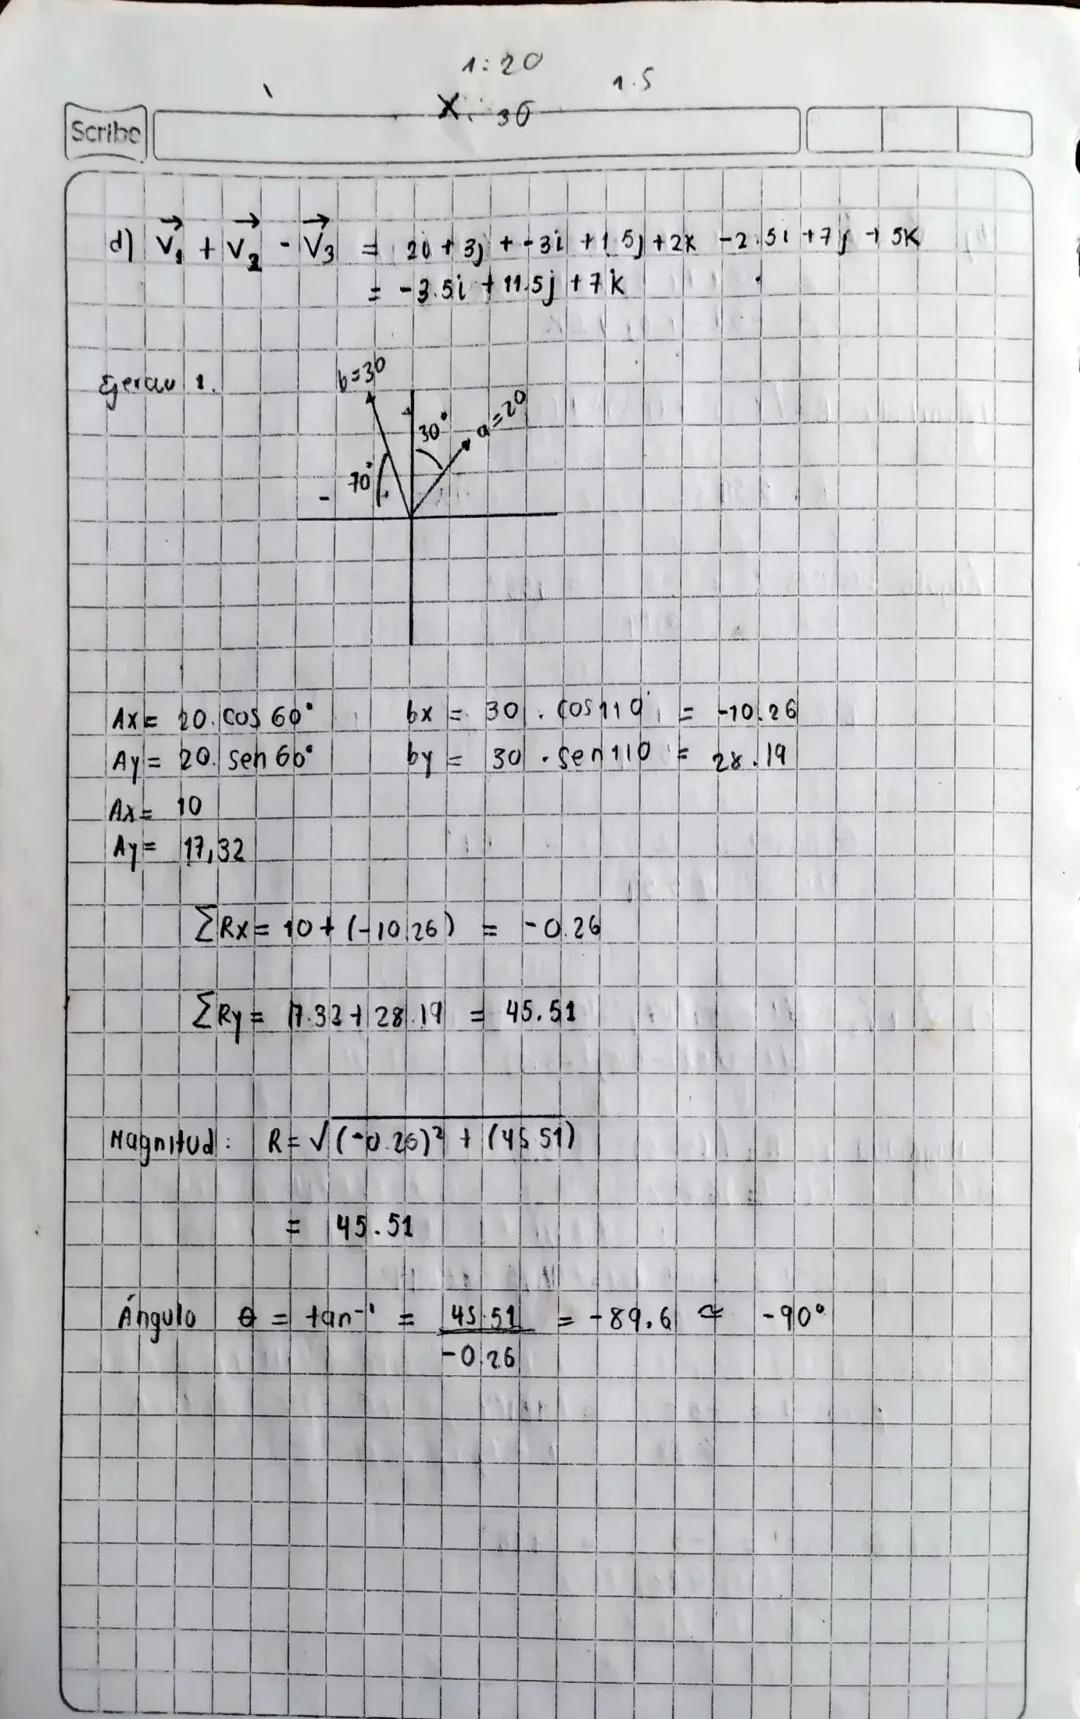 1:20
1.5
X. 36
Scribe
d) V₁ + V₂ - V₃ = 2i + 3j + -3i + 1.5j + 2k - 2.5i + 7j + 5k
= -3.5i + 11.5j + 7k
b=30
Ejercicio 1.
a=20
30°
70°
-
Ax = 20. cos 60°
bx = 30 . cos 110 = -10.26
Ay = 20. sen 60°
by = 30 . sen 110 = 28.19
Ax = 10
Ay = 17,32
ΣRx = 10 + (-10.26) = -0.26
ΣRy = 17.32 + 28.19 = 45.51
Magnitud: R = √(-0.26)² + (45.51)
= 45.51
Ángulo θ = tan⁻¹ = 45.51 / -0.26 = -89.6 ≃ -90°